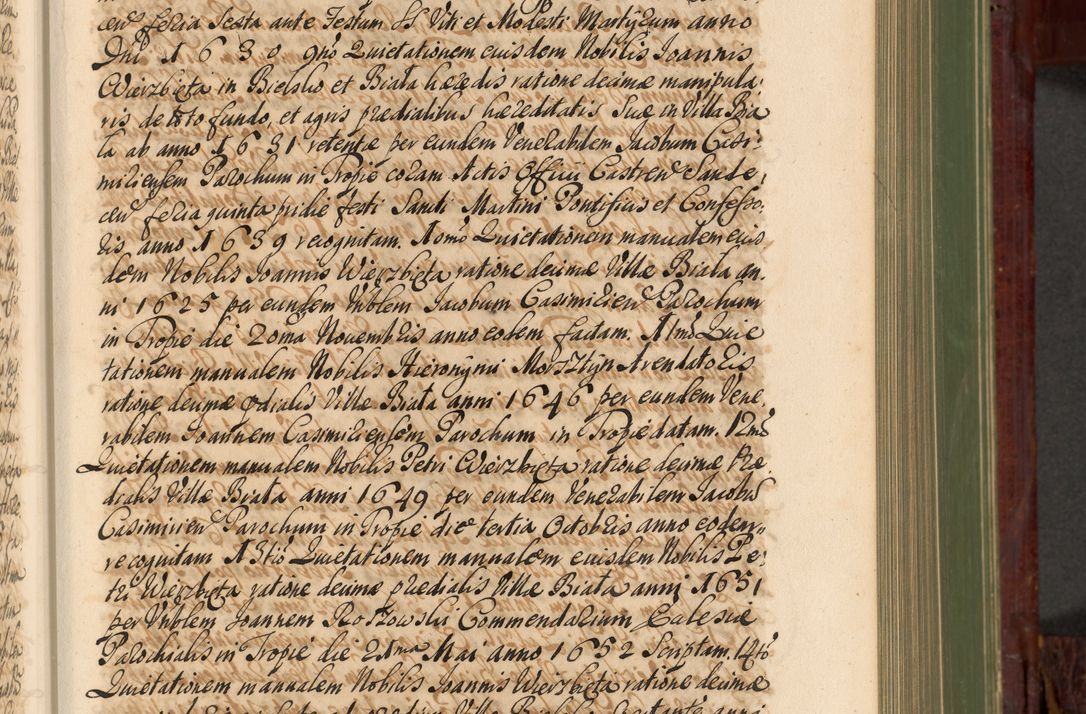 cen̄ feria Sexta ante Festum SS Viti et Modesti Martyrum anno
Dnī 1630 9nò Quietationem eiusdem Nobilis Joannis
Wierzbięta in Bielsko et Biała hæredis ratione decimæ manipula:
ris de toto fundo, et agris prædialibus hæreditatis Suæ in Villa Bia
ła ab anno 1631 retentæ per eundem Venerabilem Jacobum Casi:
miriensem Parochum in Tropie coram Actis Officii Castren̄ Sande,
cen̄ feria quinta pridie festi Sancti Martini Pontificis et Confesso,
ris anno 1639 recognitam. 10mò Quietationem manualem eius
dem Nobilis Joannis Wierzbięta ratione decimæ Villæ Biała an,
ni 1625 per eundem Vnblem Jacobum Casimirien̄ Parochum
in Tropie die 20ma Novembris anno eodem factam. 11mò Quie
tationem manualem Nobilis Hieronymi Morsztyn Arendatoris
ratione decimæ prædialis Villæ Biała anni 1646 per eundem Vene,
rabilem Joannem Casimiriensem Parochum in Tropie datam. 12mò
Quietationem manualem Nobilis Petri Wierzbięta ratione decimæ Præ,
dialis Villæ Biała anni 1649 per eundem Venerabilem Jacobū
Casimirien̄ Parochum in Tropie die tertia Octobris anno eodem
recognitam 13tiò Quietationem manualem eiusdem Nobilis Pe,
tri Wierzbięta ratione decimæ prædialis Villæ Biała anni 1651
per Vnblem Joannem Roszowski Commendarium Ecclesiæ
Parochialis in Tropie die 21ma Mai anno 1652 Scriptam, 14tò
Quietationem manualem Nobilis Joannis Wierzbięta ratione decimæ